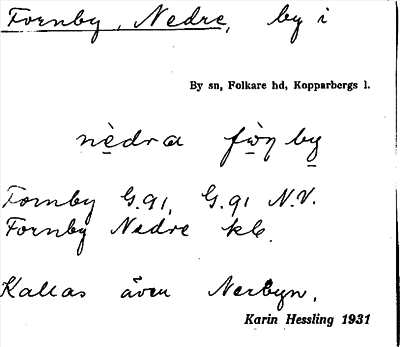 Fornby, Nedre, by i
By sn, Folkare hd, Kopparbergs l.
nèdra fòn by
Fornby G.91, G.91 N.V.
Fornby Nedre kb.
Kallas även Nerbyn.
Karin Hessling 1931